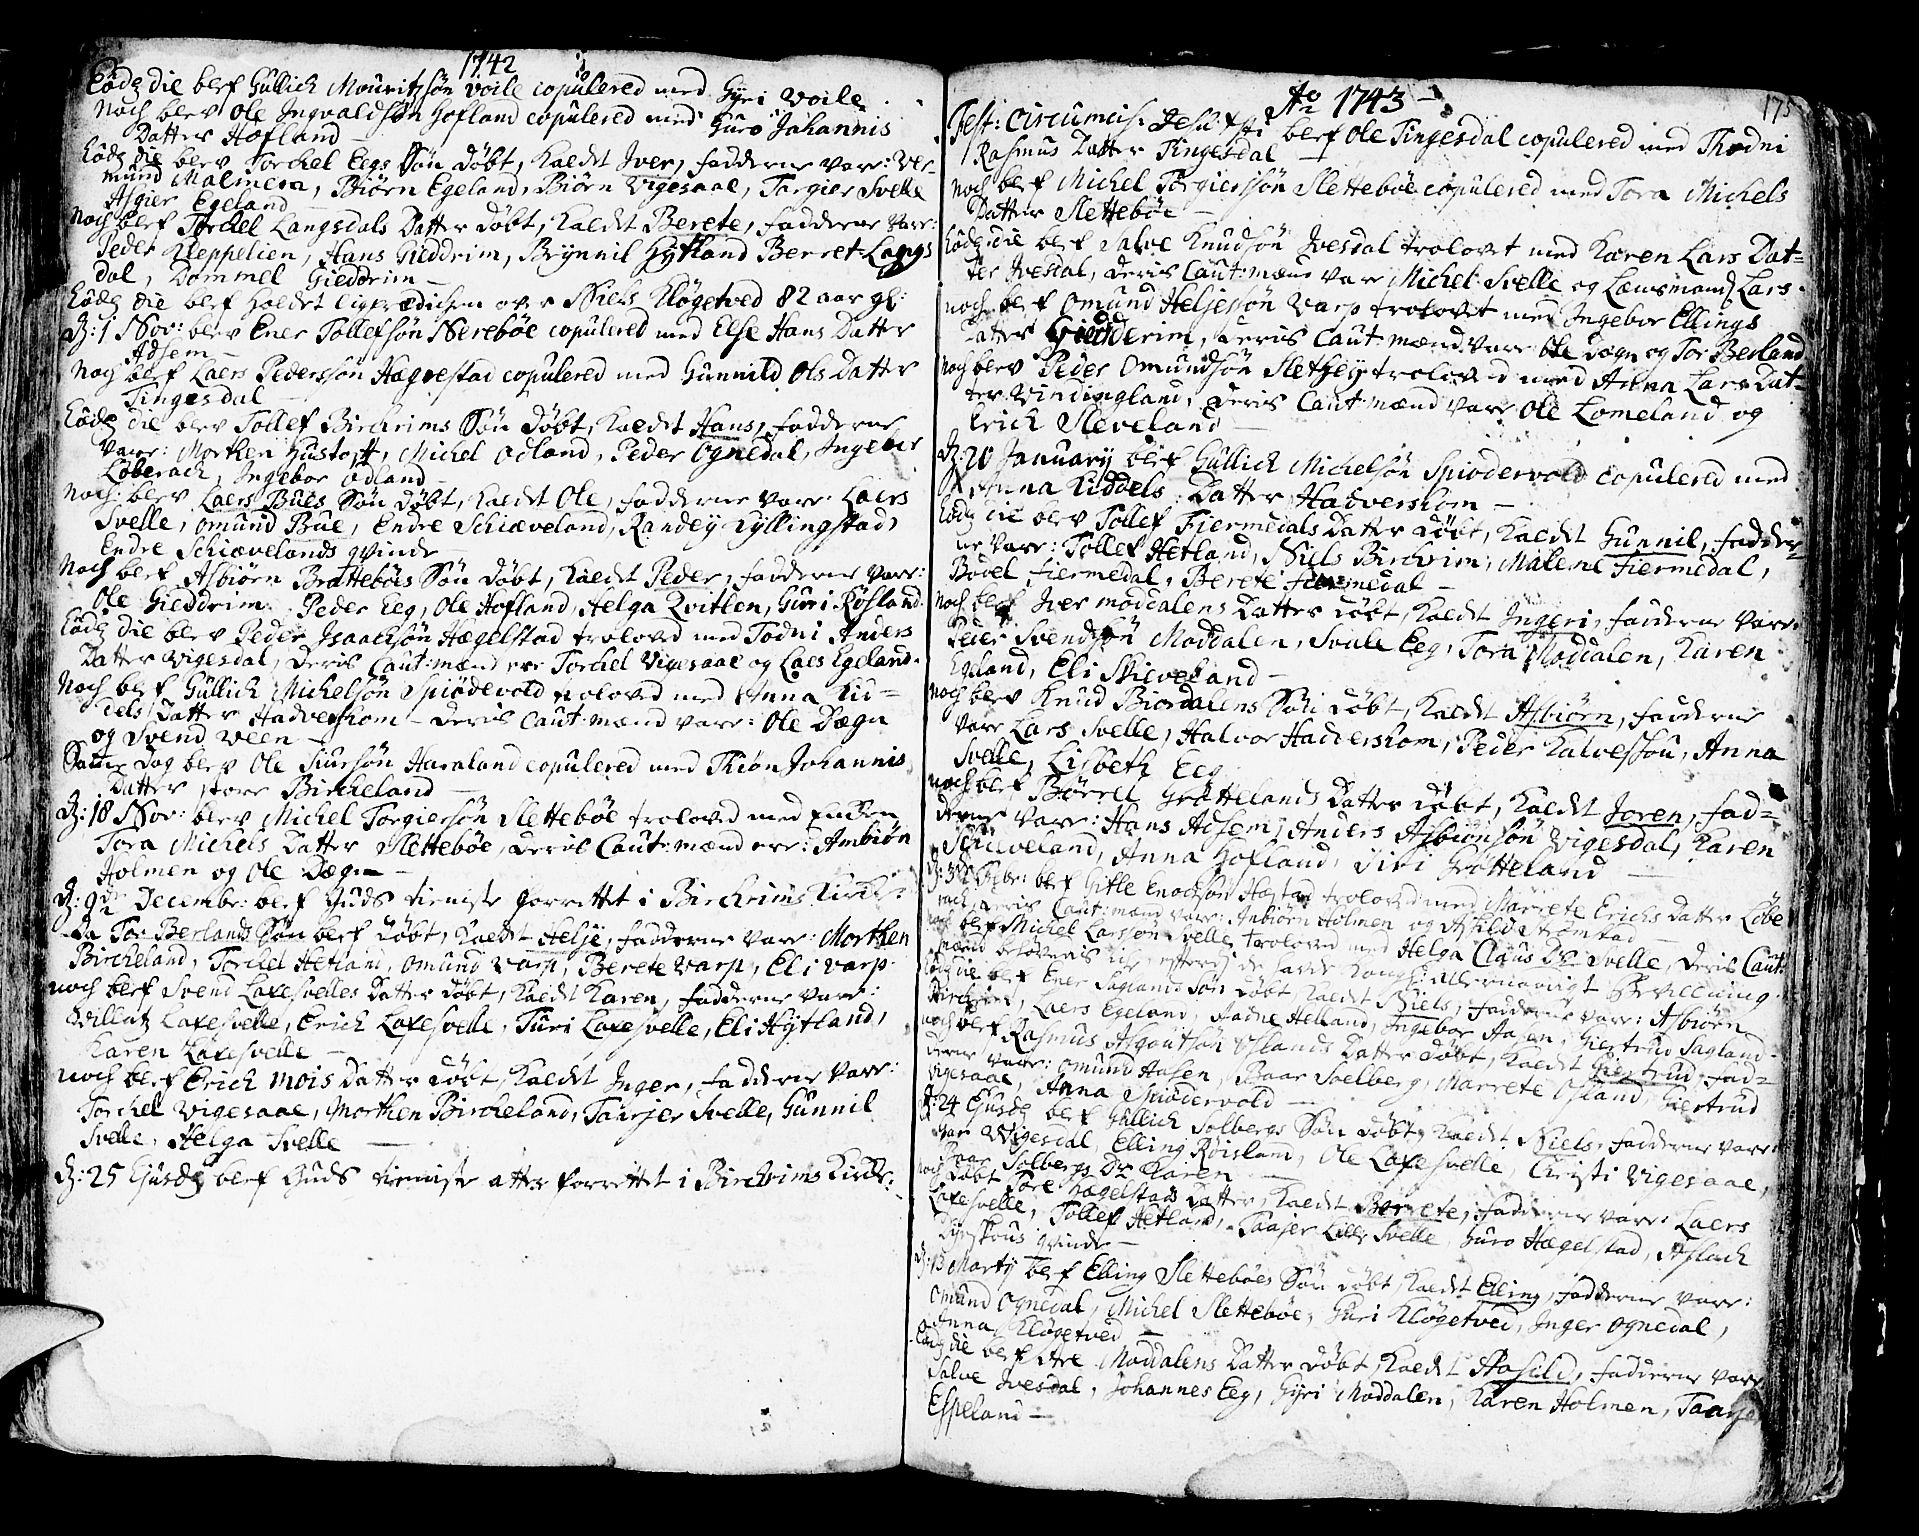 1742
Eodē die blef Gullich Mouritssøn Voile copulered med Gÿri Voile
Noch blev Ole Ingvaldsøn Hofland copulered med Guro Johannis
Datter Hofland
Eodē die blev Torchel Eegs Søn døbt, kaldt Iver, fadderne vare: Ver-
mund Malmein, Biørn Egeland, Biørn Vigesaae, Targier Svelle
Asgier Egeland
Noch blef Torchel Langsdals Datter døbt, kaldt Berete, fadderne vare:
Peder Kleppelien, Hans Gieddrim, Brÿnnil Hÿtland Berret Langs
dal, Dommel Gieddrim
Eodē die blef holdt ligprædichen over Niels Kløgetved 82 aar gl:
D: 1 Nov: blev Ener Tollefsøn Nerebøe copulered med Else Hans Datter
Adsem
Noch blef Laers Pederssøn Hægrestad copulered med Gunnild Ols Datter
Tingesdal
Eodē die blev Tollef Birchrims Søn døbt, kaldt Hans, fadderne
vare: Morthen Gustoft, Michel Odland, Peder Ognedal, Ingebor
Løberach, Ingebor Odland
Noch: blev Laers Bues Søn døbt, kaldt Ole, fadderne vare: Laers
Svelle, Omund Bue, Endre Schiæveland, Randeÿ Kÿllingstad,
Endre Schiævelands qvinde
Noch blef Asbiørn Brattebøes Søn døbt, kaldt Peder, fadderne vare:
Ole Gieddrim, Peder Eeg, Ole Hofland, Helga Qvitlen, Guri Røsland
Eodē die blev Peder Isaachsøn Hægelstad trolovd med Todni Anders
Datter Vigesdal, deris Caut:mænd ere Torchel Vigesaae og Laes Egeland.
Noch blef Gullich Michelsøn Spiødevold trolovd med Anna Kid-
dels Datter Hadvershom - deris Caut:mænd vare: Ole Dægn
og Svend Veen
Samme Dag blev Ole Siursøn Haraland copulered med Thiøn Johannis
Datter store Bircheland
D: 18 Nov: blev Michel Torgiersøn Slettebøe trolovd med Enchen
Tora Michels Datter Slettebøe, deris Caut:mænd ere: Ambiøn
Holmen og Ole Dægn
D: 9de Decembr: blef Guds tieniste forrettet i Birchrims Kirche:
Da Tor Berlands Søn blef døbt, kaldt Helje, fadderne vare: Morthen
Bircheland, Torchel Hetland, Omund Varp, Berete Varp, Eli Varp.
Noch blef Svend Laxesvelles Datter døbt, kaldt Karen, fadderne vare:
Willatz Laxesvelle, Erich Laxesvelle, Turi Laxesvelle, Eli Hÿtland,
Karen Laxesvelle
Noch blef Erich Mois Datter døbt, kaldt Inger, fadderne vare:
Torchel Vigesaae, Morthen Bircheland, Taarjer Svelle, Gunnil
Svelle, Helga Svelle
D: 25 Ejusdē blef Guds tieniste atter forrettet i Birchrims Kirche:
175
Ao 1743
Fest: Circumcis: Jesu Xsti blef Ole Tingesdal copulered med Thodni
Rasmus Datter Tingesdal
Noch blef Michel Torgierssøn Slettebøe copulered med Tora Michels
Datter Slettebøe
Eodē die blef Salve Knudsøn Ivesdal trolovet med Karen Lars Dat-
ter Ivesdal, deris Caut:mænd vare Michel Svelle og Lænsmand Lars.
Noch blef Omund Heljessøn Varp trolovet med Ingebor Ellings
Datter Gieddrim, deris Caut:mænd vare Ole Dægn og Tor Berland
Noch blev Peder Omundsøn Sletheÿ trolovet med Anna Lars Dat-
ter Vindingland, deris Caut:mænd vare Ole Lomeland og
Erich Sleveland
D: 20 Januarÿ blef Gullich Michelsøn Spiodervold copulered med
Anna Kiddels Datter Hadvershom
Eodē die blev Tollef Fiermedals Datter døbt, kaldt Gunnil, fadder-
ne vare: Tollef Hetland, Niels Birchrim, Malene Fiermedal,
Bodel Fiermedal, Berete Fiermedal
Noch blef Iver Moddalens Datter døbt, kaldt Ingeri, fadderne vare
Peder Svendsøn Moddalen, Svale Eeg, Tora Moddalen, Karen
Egeland, Eli Skieveland
Noch blev Knud Biordalens Søn døbt, kaldt Asbiørn, fadderne
vare Lars Svelle, Halvor Hadvershom, Peder Kalvessøn, Anna
Svelle, Lisbeth Eeg
Noch blef Børrel Grøttelands Datter døbt, kaldt Joren, fad-
derne vare: Hans Adsem, Anders Asbiønsøn Vigesdal, Karen
Schieveland, Anna Hofland, Siri Grøtteland
D: 3 Febr: blef Gitle Enochsøn Hæstad trolovd med Marrete Erichs Datter Løbe
rach, deris Caut:mænd vare: Anbiørn Holmen og Askild Strømstad
Noch blef Michel Larssøn Svelle trolovd med Helga Claus Dr Svelle, deris Caut:
mænd behøvedis icke, efterdj de hafde Kongl: allernaadigst Bevillning.
Eodē die blef Ener Saglands Søn døbt kaldt Niels, fadderne vare: Asbiørn
Birchrim, Laers Egeland, Helland, Ingebor Aasen, Giertrud Sagland.
Noch blef Rasmus Asgoutsøn Øslands Datter døbt, kaldt Giertrud, fad-
derne vare: Omund Aasen, Baar Svelberg, Marrete Øsland, Giertrud
Vigesaae, Anna Spiødervold
D: 24 Ejusdē blef Gullich Solbergs Søn døbt, kaldt Niels, fadderne vare
Wigesdal, Elling Røisland, Ole Laxesvelle, Christi Vigesaae,
Baar Solbergs Dr Karen
Noch døbt Tore Hægelstads Datter, kaldt Berrete, fadderne vare: Laers
Laxesvelle, Tollef Hetland, Taajer Lille Svelle, Guro Hægelstad, Aslach
Dÿrskous qvinde
D: 13 Martÿ blef Elling Slettebøes Søn døbt, kaldt Elling, fadderne vare:
Omund Ognedal, Michel Slettebøe, Guri Kløgetved, Inger Ognedal,
Anna Kløgetved
Eodē die blef Are Moddalens Datter døbt, kaldt Aasild, fadderne vare
Salve Ivesdal, Johannes Eeg, Gÿri Moddalen, Karen Holmen, Taarje
Espeland